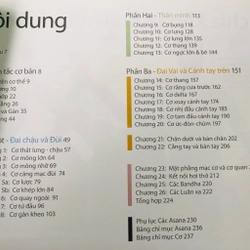 ội dung
7
tắc cơ bản 8
cơ thể 9
22
26
44
Đai chậu và Đùi 49
Cơ thắt lưng - chậu 57
Cơ mông lớn 64
Cơ mông nhỡ 69
Cơ căng mạc đùi 74
Cơ lược 79
Cơ khép lớn 84
Cơ quay ngoài 91
Cơ tứ đầu 96
Cơ gân kheo 103
Phần Hai - Thân mình 113
Chương 9 Cơ bụng 118
Chương 10 Cơ lưng 126
Chương 11 Cơ lưng trên 135
Chương 12 Cơ thang 139
Chương 13 Cơ ngực lớn & bé 144
Phần Ba - Đai Vai và Cánh tay trên 151
Chương 14 Cơ tháp 157
Chương 15 Cơ răng cưa trước 162
Chương 16 Cơ delta 167
Chương 17 Cơ xoay cánh tay 174
Chương 18 Cơ nhị đầu 183
Chương 19 Cơ tam đầu 187
Chương 20 Cơ ức-đòn-chũm 197
Chương 21 Chân dưới và bàn chân 202
Chương 22 Cẳng tay và bàn tay 206
Chương 23 Mặt phẳng mạc cơ và cơ quan
Chương 24 Kết nối hơi thở 212
Chương 25 Các Bandha 220
Chương 26 Các Luân xa 222
Tổng hợp 224
Phụ lục Các Asana 230
Bảng chỉ mục Asana 236
Bảng chỉ mục Cơ 237